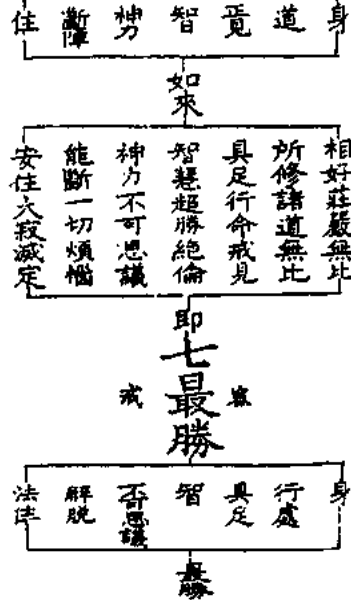 身
道
正見
智
神力
斷障
住
如來
相好莊嚴無比
所修諸道無比
具足行命戒見
智慧超勝絕倫
神力不可思議
能斷一切煩惱
安住大寂滅定
即
七最勝
戒
身
行處
具足
智
不可思議
解脫
法住
最勝